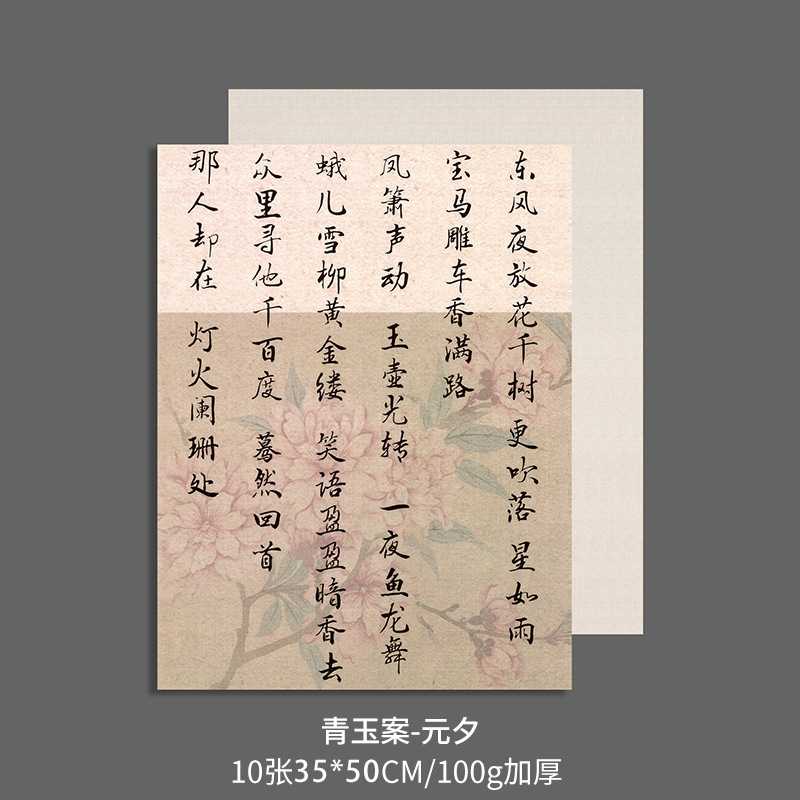 东风夜放花千树 更吹落 星如雨
宝马雕车香满路
凤箫声动 玉壶光转 一夜鱼龙舞
蛾儿雪柳黄金缕 笑语盈盈暗香去
众里寻他千百度 蓦然回首
那人却在 灯火阑珊处
青玉案-元夕
10张35*50CM/100g加厚